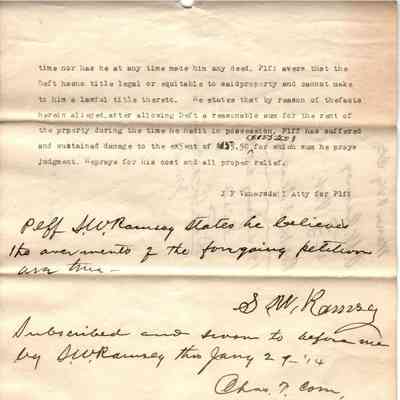 time nor has he at any time made him any deed. Plff avers that the
Deft hasno title legal or equitable to saidproperty and cannot make
to him a lawful title thereto. He states that by reason of thefacts
herein alleged,after allowing Deft a reasonable sum for the rent of
the prperty during the time he hadit in possession, Plff has suffered
and sustained damage to the extent of .50 for which sum he prays
judgment. Heprays for his cost and all proper relief.
J F Vanarsdall Atty for Plff
Plff S.W. Ramsey states he believes
the averments of the forgoing petition
are true—
S. W. Ramsey
Subscribed and sworn to before me
by S.W. Ramsey this Jany 29 '14
Chas. T. Corn,